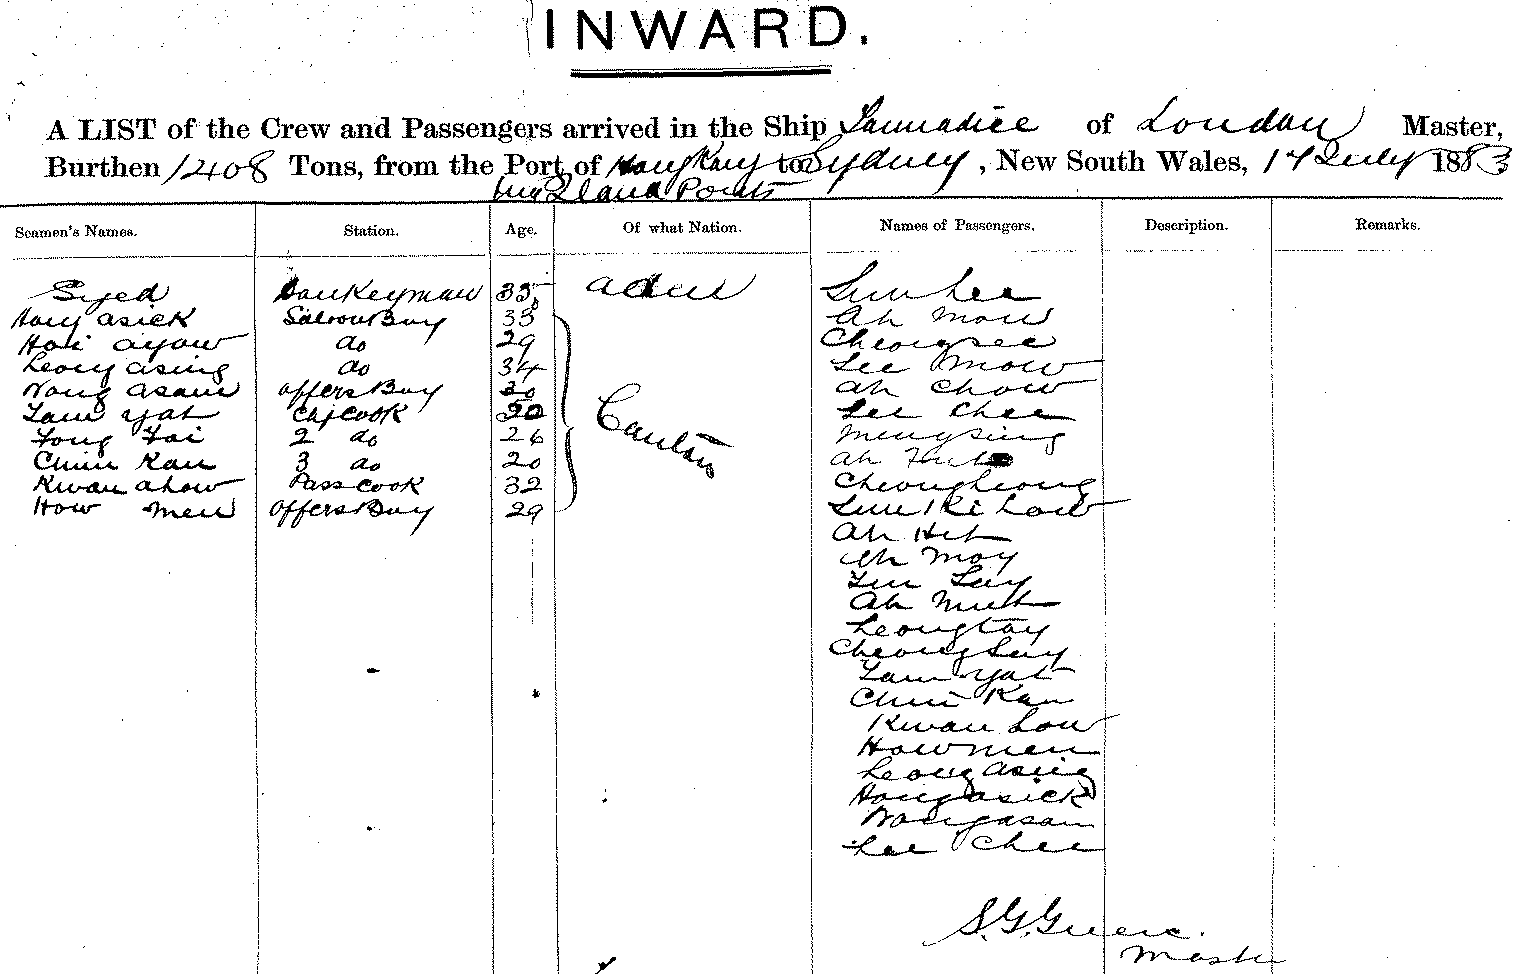 INWARD.
A LIST of the Crew and Passengers arrived in the Ship Tannadice of London Master,
Burthen 1408 Tons, from the Port of Hong Kong to Sydney, New South Wales, 17 July 1883
Ports
Seamen's Names. Station. Age. Of what Nation. Names of Passengers. Description. Remarks.
Syed Donkeyman 35 Aden Sun Lee
Hong asick Saloon Boy 33 Ah Mow
Hoi ayow do 29 Cheong see
Leong asing do 34 Lee Mow
Wong asam offers Boy 30 Ah Chow
Tam Yat Chf Cook 50 Lee Chee
Fong Fai 2 do 26 Mengsing
Canton
Chun Kan 3 do 20 Ah
Kwan ahow Pass cook 32 Cheongleong
How men offers Boy 29 Sun Ki Low
Ah Hit
Ah Moy
Yun Lay
Ah Mut
Leongtay
Cheong Lay
Tam Yat
Chun Kan
Kwan Low
How men
Leong asing
Hong asick
Wong asam
Lee Chee
S. G. Green.
Master